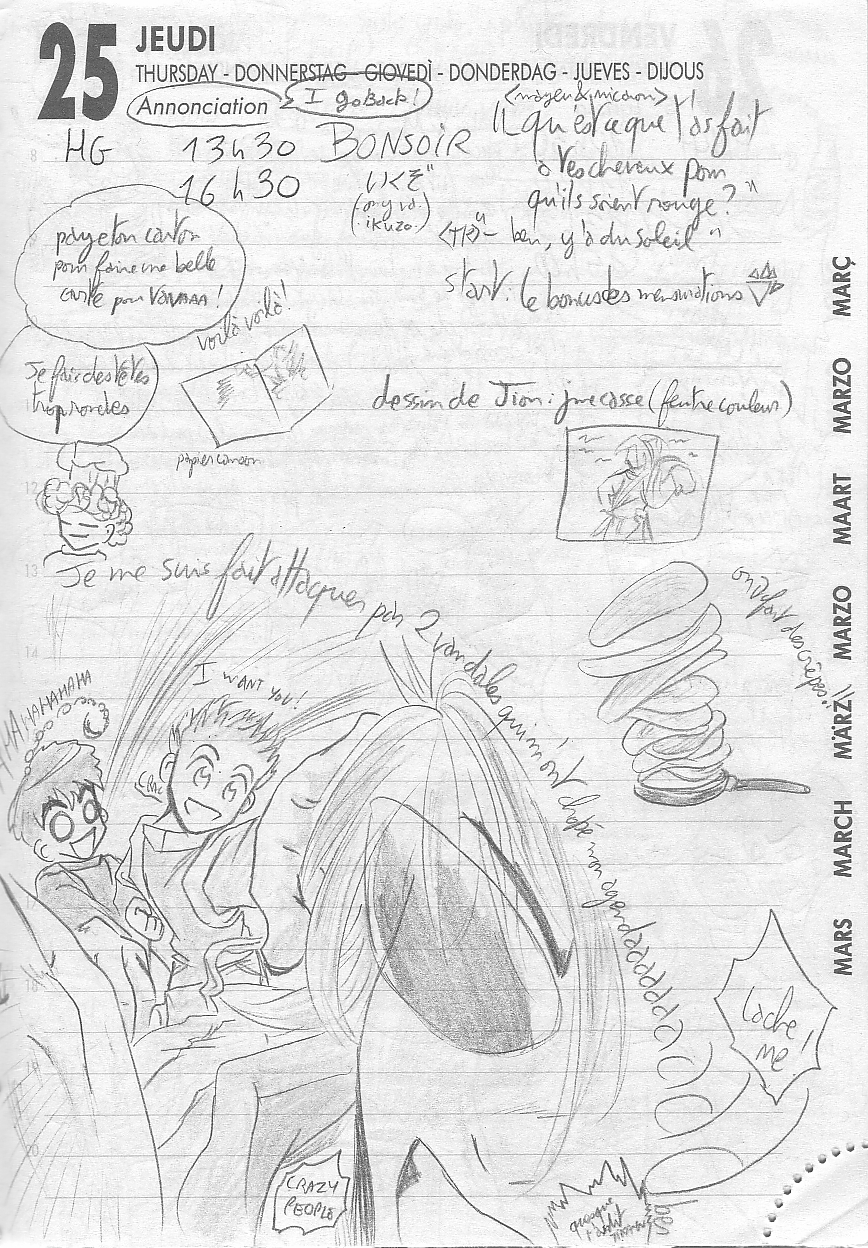 25 JEUDI
THURSDAY - DONNERSTAG - GIOVEDÌ - DONDERDAG - JUEVES - DIJOUS
Annonciation
I go Back!
HG 13h30 BONSOIR
16h30
いくぞ"
ikuzo.
"qu'est ce que t'as fait
à tes cheveux pour
qu'ils soient rouge?"
ben, y'a du soleil"
start: le bonus des
paye ton carton
pour faire une belle
carte pour
voilà voilà!
je fais des têtes
trop rondes
papier canson
dessin de Jion: j'me casse (feutre couleur)
Je me suis fait attaquer par 2 vandales qui m'ont chopé mon agendaaaaaaaaaa
on a fait des crêpes
HAHAHAHAHAHA
I WANT YOU!
CRAC
Lache
me!
CRAZY
PEOPLE
8
9
12
13
14
18
19
20
MARS MARCH MÄRZ MARZO MAART MARZO MARÇ